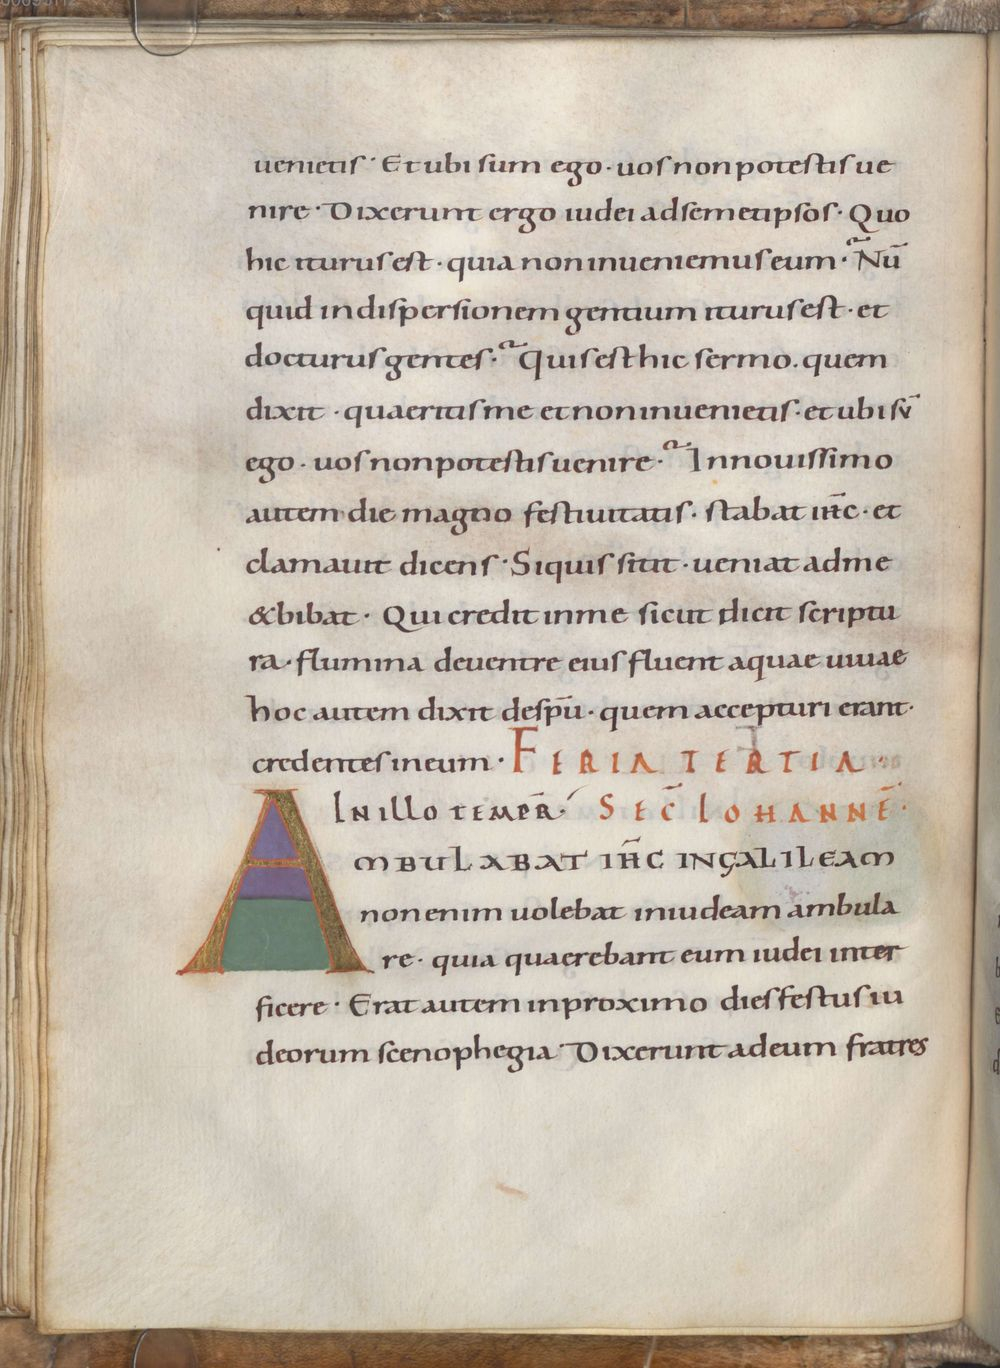 uenietis· Et ubi sum ego· uos non potestis ue
nire· Dixerunt ergo iudei ad semetipsos· Quo
hic iturus est· quia non inueniemus eum· Nū
quid in dispersionem gentium iturus est· et
docturus gentes· Quis est hic sermo. quem
dixit· quaeritis me et non inuenietis· et ubi sū
ego· uos non potestis uenire· In nouissimo
autem die magno festiuitatis· stabat ih̄c· et
clamauit dicens· Siquis sitit· ueniat ad me
& bibat· Qui credit in me sicut dicit scriptu
ra· flumina de uentre eius fluent aquae uiuae
hoc autem dixit de sp̄u· quem accepturi erant·
credentes in eum· FERIA TERTIA·
IN ILLO TEMPR̄· SEC̄ IOHANNĒ·
AMBULABAT IH̄C IN GALILEAM
non enim uolebat in iudeam ambula
re· quia quaerebant eum iudei inter
ficere· Erat autem in proximo dies festus iu
deorum scenophegia· Dixerunt ad eum fratres